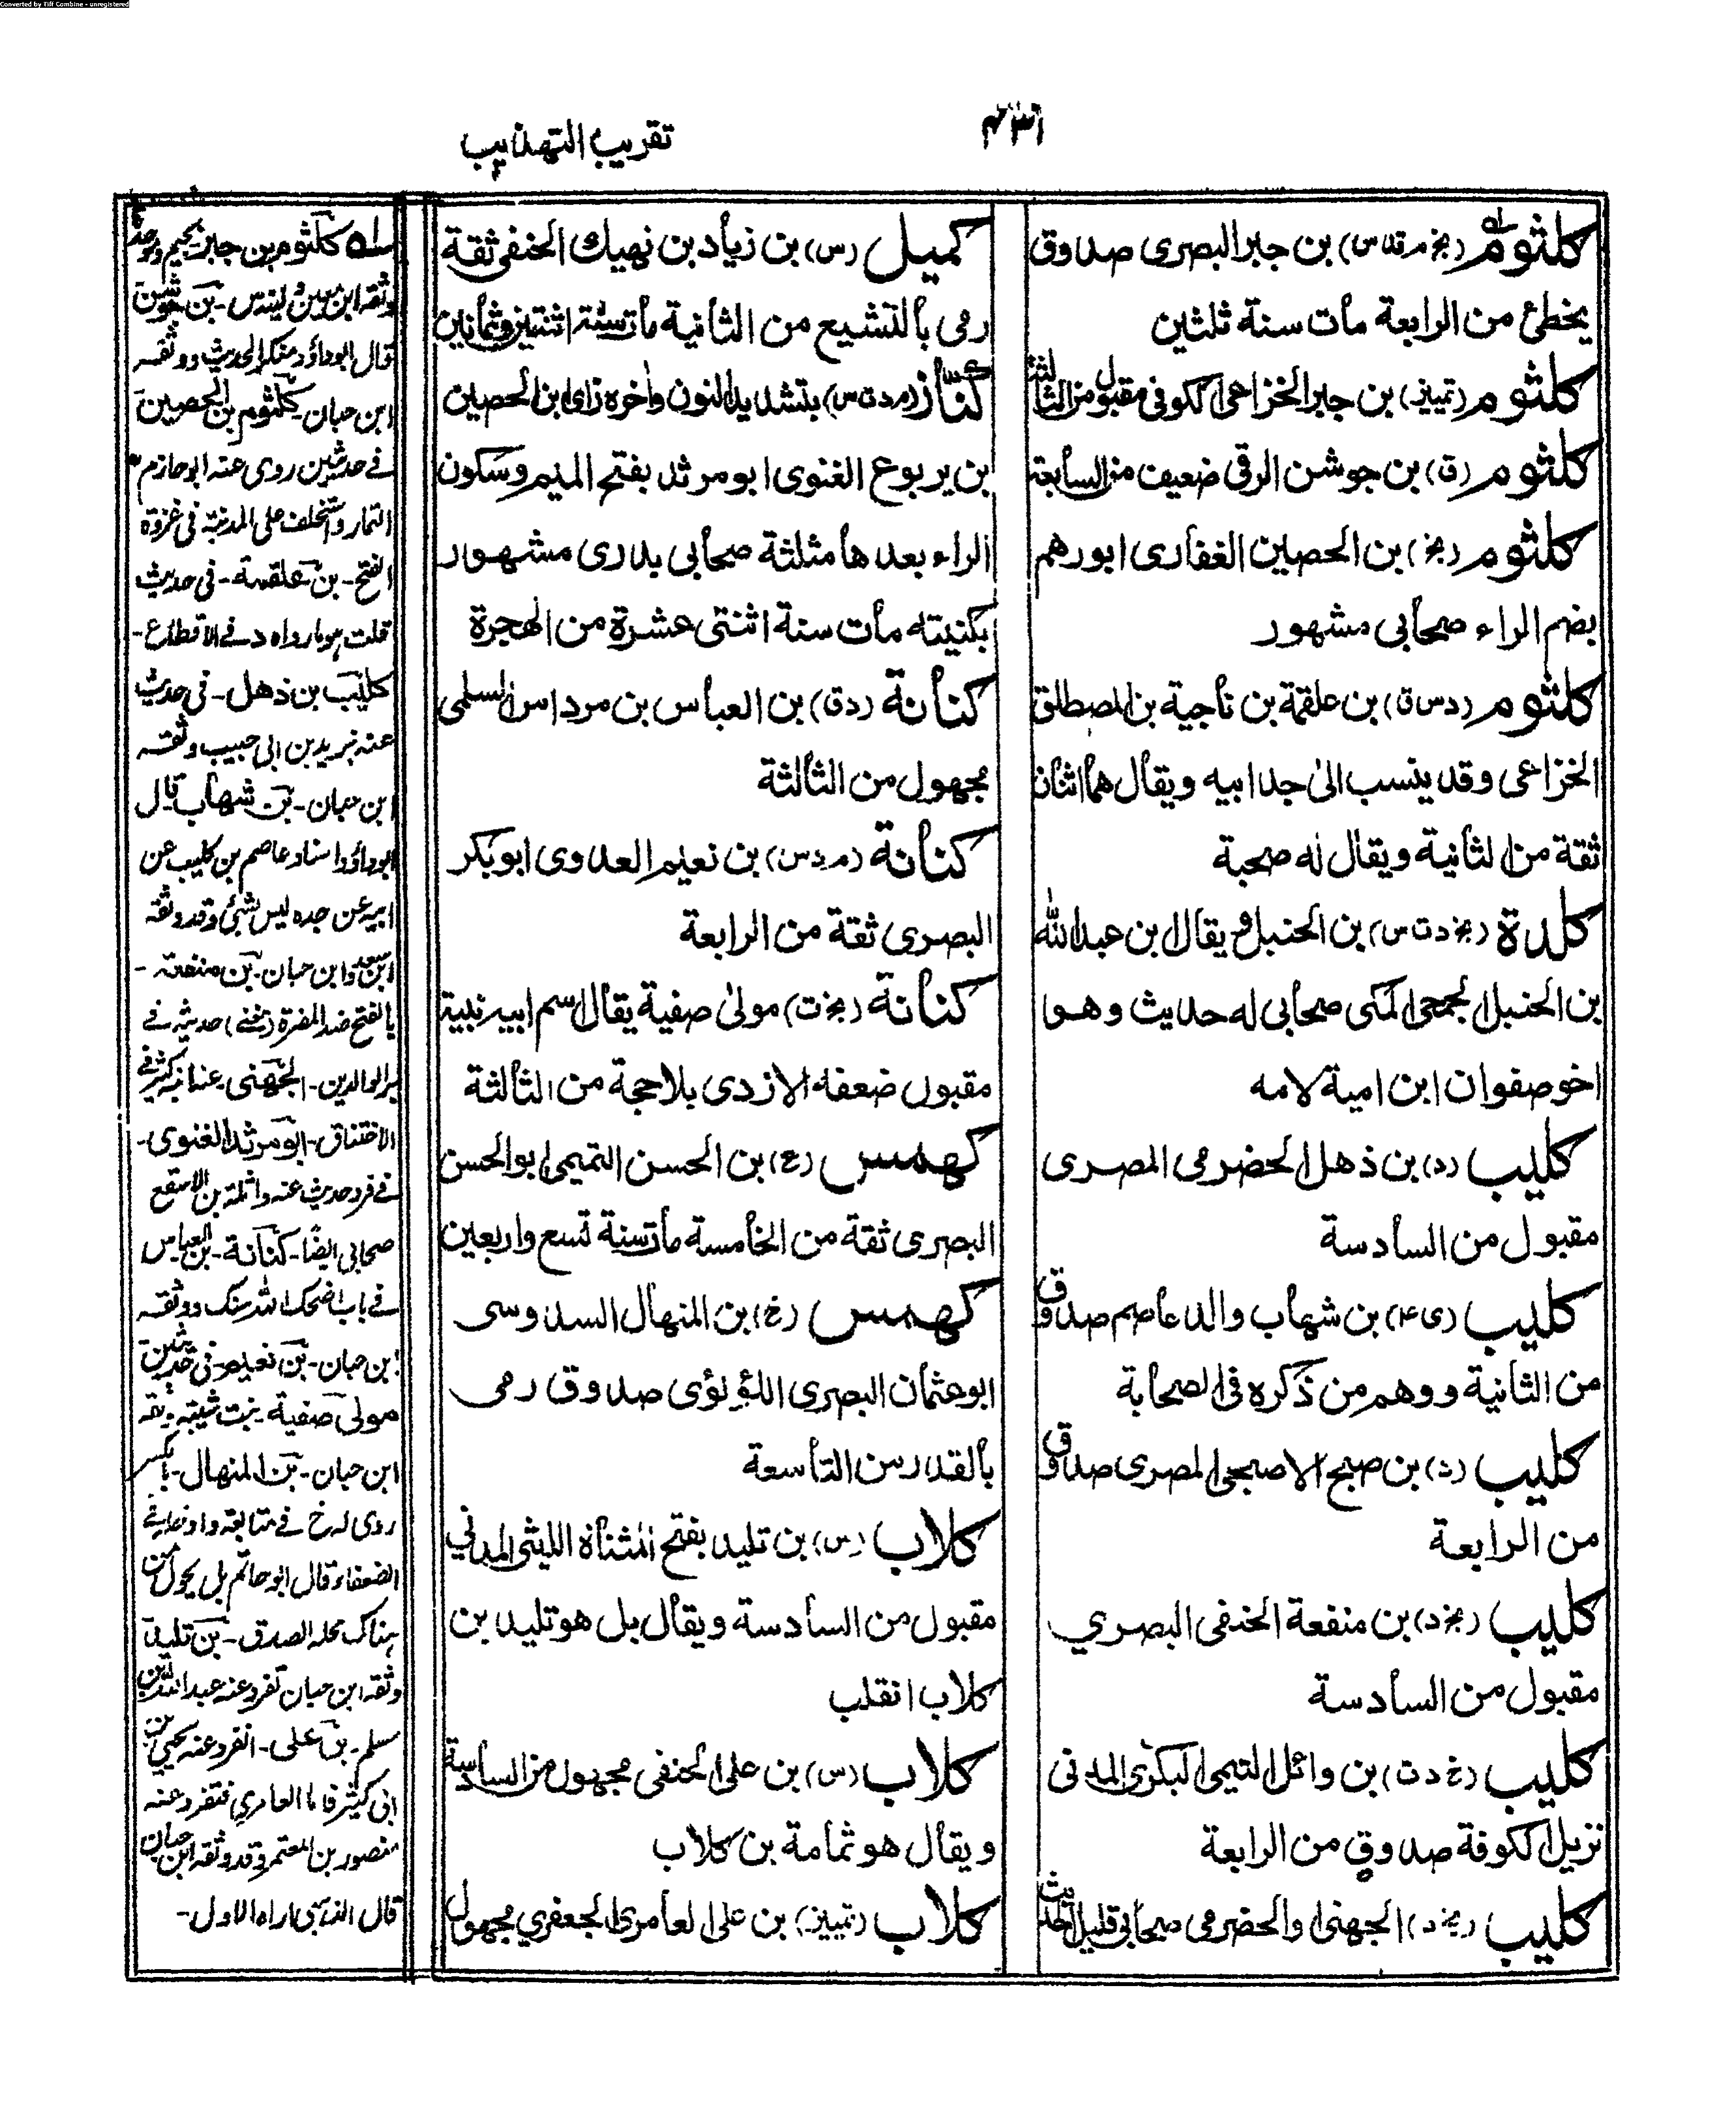 Converted by Tiff Combine - unregistered
تقريب التهذيب
كلثوم (بخ م قد س) بن جبر البصرى صدوق
يخطئ من الرابعة مات سنة ثلثين
كلثوم (تمييز) بن جبر الخزاعى الكوفى مقبول من الثالثة
كلثوم (ق) بن جوشن الرقى ضعيف من السابعة
كلثوم (بخ) بن الحصين الغفارى ابورهم
بضم الراء صحابى مشهور
كلثوم (د س ق) بن علقمة بن ناجية بن المصطلق
الخزاعى وقد ينسب الى جد ابيه ويقال هما اثنان
ثقة من الثانية ويقال له صحبة
كلدة (بخ د ت س) بن الحنبل ويقال ابن عبدالله
بن الحنبل الجمحى المكى صحابى له حديث وهو
اخو صفوان ابن امية لامه
كليب (د) بن ذهل الحضرمى المصرى
مقبول من السادسة
كليب (ى ۴) بن شهاب والد عاصم صدوق
من الثانية ووهم من ذكره فى الصحابة
كليب بن صبح الاصبحى المصرى صدوق
من الرابعة
كليب (بخ د) بن منفعة الحنفى البصري
مقبول من السادسة
كليب (خ د ت) بن وائل التيمى البكرى المدنى
نزيل الكوفة صدوق من الرابعة
كليب (بخ د) الجهنى والحضرمى صحابى قليل الحديث
كميل (س) بن زياد بن نهيك الحنفى ثقة
رمى بالتشيع من الثانية مات سنة اثنتين وثمانين
كناز (م د ت س) بتشديد النون واخره زاى ابن الحصين
بن يربوع الغنوى ابو مرثد بفتح الميم وسكون
الراء بعدها مثلثة صحابى بدرى مشهور
بكنيته مات سنة اثنتى عشرة من الهجرة
كنانة (د ق) بن العباس بن مرداس السلمى
مجهول من الثالثة
كنانة (م د س) بن نعيم العدوى ابوبكر
البصرى ثقة من الرابعة
كنانة (بخ ت) مولى صفية يقال اسم ابيه نبيه
مقبول ضعفه الازدى بلا حجة من الثالثة
كهمس (ع) بن الحسن التميمى ابو الحسن
البصرى ثقة من الخامسة مات سنة تسع واربعين
كهمس (خ) بن المنهال السدوسى
ابو عثمان البصرى اللؤلؤى صدوق رمى
بالقدر من التاسعة
كلاب (س) بن تليد بفتح المثناة الليثى المدنى
مقبول من السادسة ويقال بل هو تليد بن
كلاب انقلب
كلاب (س) بن على الحنفى مجهول من السادسة
ويقال هو ثمامة بن كلاب
كلاب (تمييز) بن على العامرى الجعفري مجهول
كلثوم بن جبر بجيم وموحدة
وثقه ابن معين بن جوشن
قال ابوداؤد منكر الحديث ووثقه
ابن حبان - كلثوم بن الحصين
فے حديثين روى عنه ابو حازم
التمار واستخلف على المدينة فى غزوة
الفتح - بن علقمة - فى حديث
قلت هو ما رواه د فے الاقطاع -
كليب بن ذهل - فى حديث
عنه يزيد بن ابى حبيب وثقه
ابن حبان - بن شهاب قال
ابوداؤد اسناد عاصم بن كليب عن
ابيه عن جده ليس بشئ وقد وثقه
ابن سعد وابن حبان - بن منفعة -
بالفتح ضد المضرة حديثه فے
بر الوالدين - الجهنى عنه
ابو مرثد الغنوى -
فے فرد حديث عنه واثلة بن الاسقع
صحابى ايضا - كنانة - بن العباس
فے باب اضحك الله سنك ووثقه
ابن حبان - بن نعيم - فى حديثين
مولى صفية - بنت شيبة وثقه
ابن حبان - بن المنهال -
روى له خ فے متابعة
الضعفاء قال ابو حاتم بل يحول من
هناك محله الصدق - بن تليد
وثقه ابن حبان تفرد عنه عبدالله بن
مسلم - بن على - انفرد عنه يحيى بن
ابى كثير فاما العامري فتفرد عنه
منصور بن المعتمر وقد وثقه ابن حبان
قال الذهبى اراه الاول -